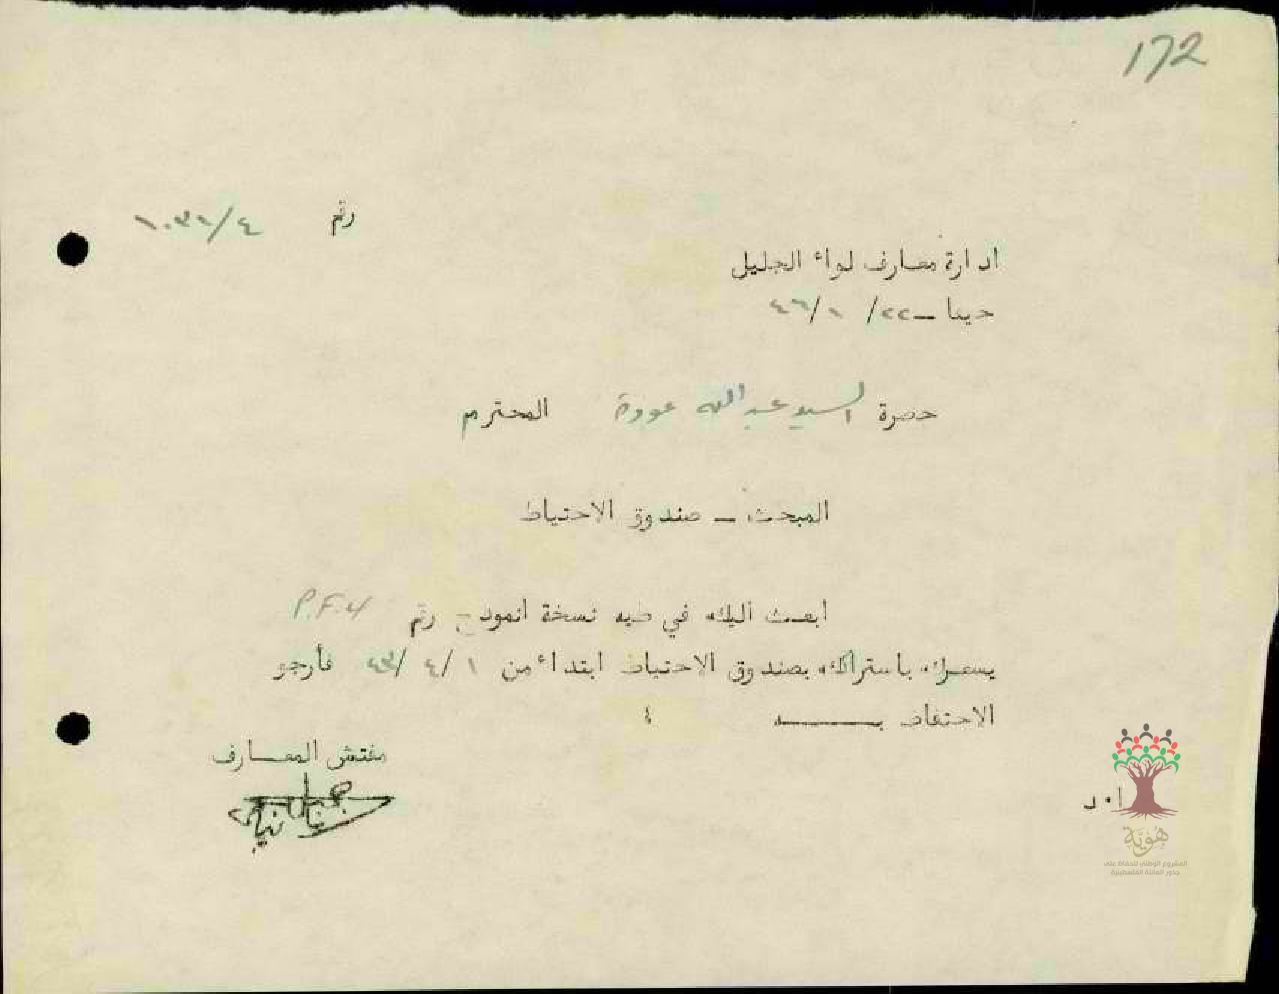 172
رقم ١٠٣١/٤
ادارة معارف لواء الجليل
حيفا - ٢٢/ ١/ ٤٦
حضرة السيد عبدالله عودة المحترم
المبحث - صندوق الاحتياط
ابعث اليك في طيه نسخة انموذج رقم P.F.4
يشعرك باشتراكك بصندوق الاحتياط ابتداء من ١ /٤ /٤٣ فأرجو
الاحتفاظ بـــه ،
مفتش المعــارف
هُوِيَّة
المشروع الوطني للحفاظ على
جذور العائلة الفلسطينية